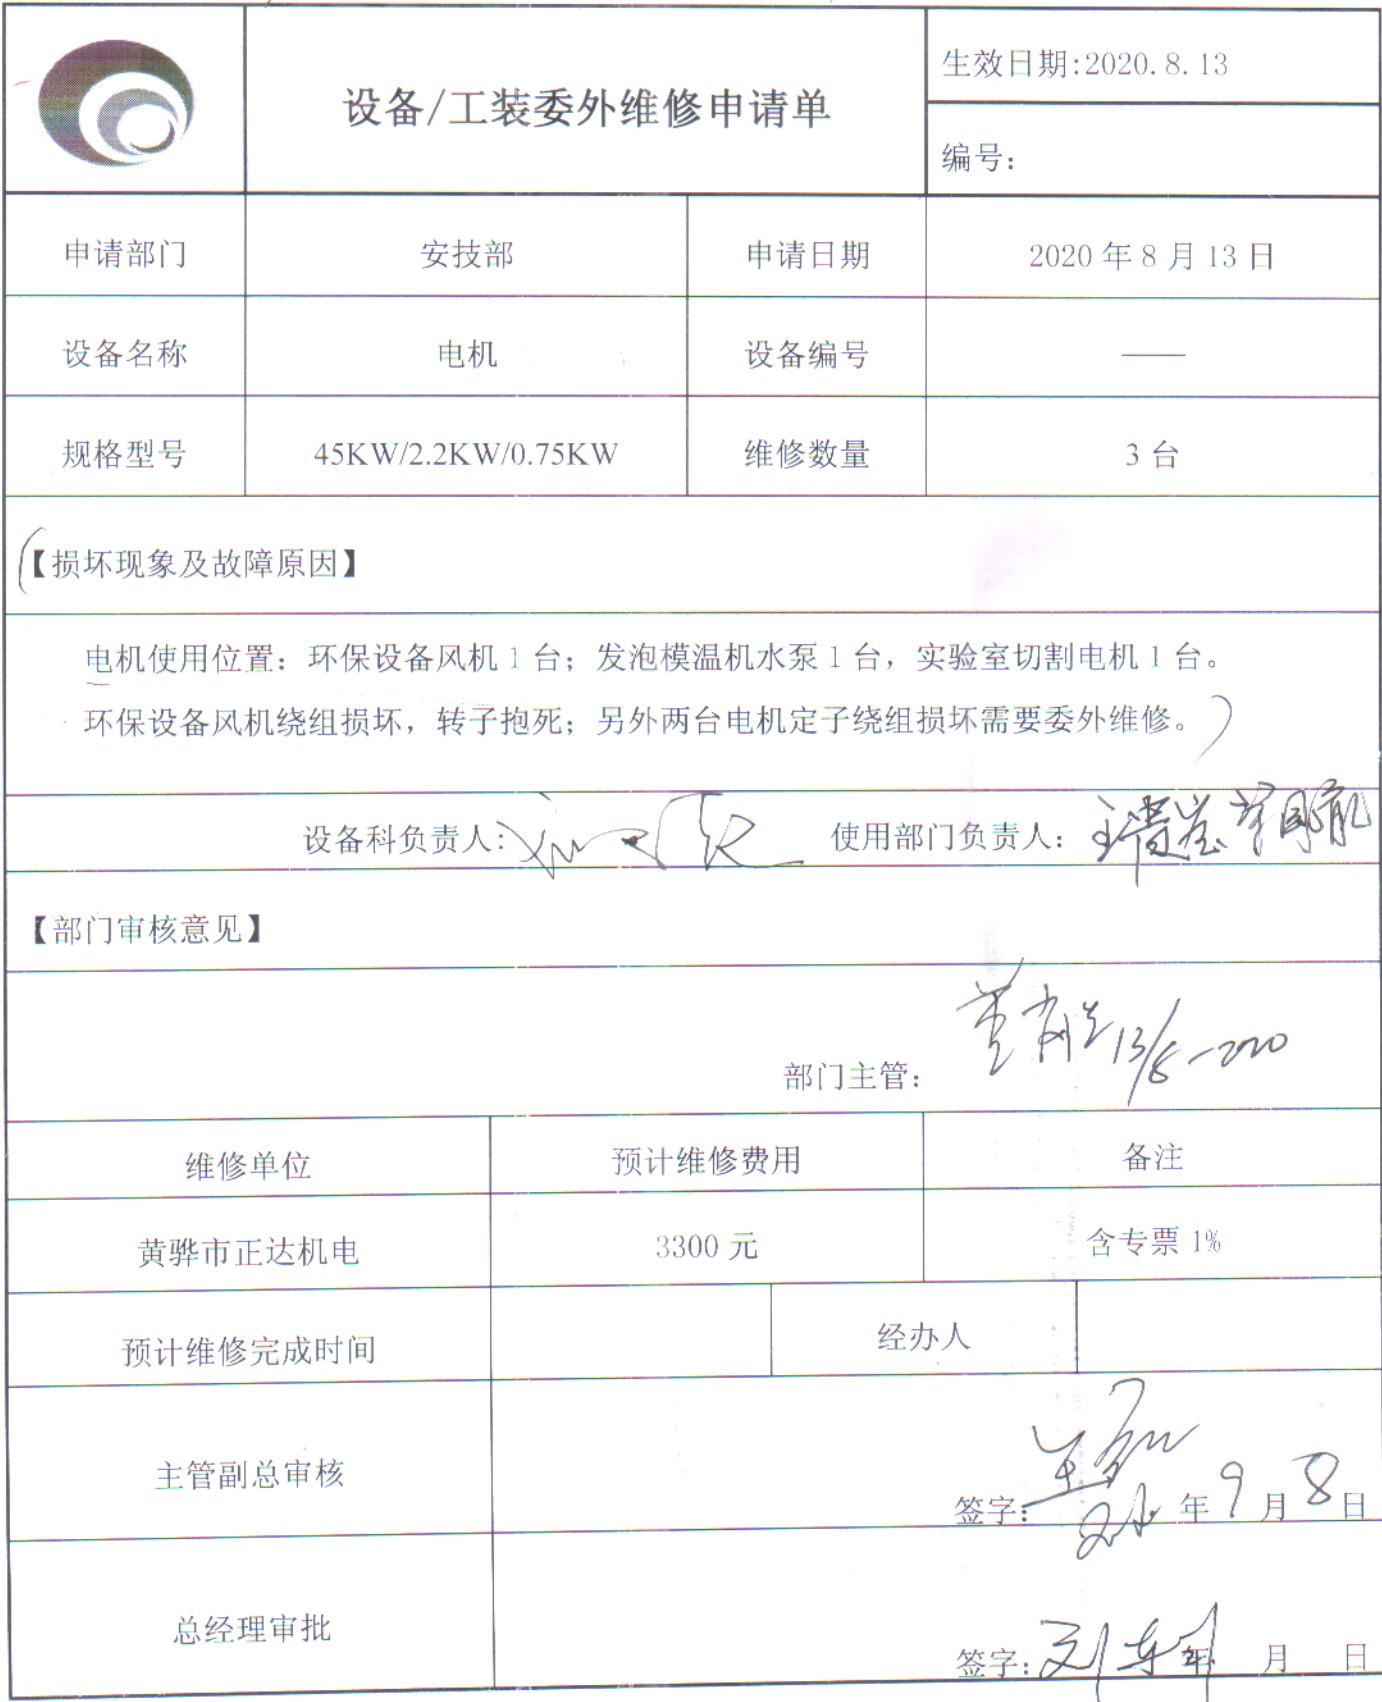 设备/工装委外维修申请单
生效日期:2020.8.13
编号：
申请部门 安技部 申请日期 2020 年 8 月 13 日
设备名称 电机 设备编号 ——
规格型号 45KW/2.2KW/0.75KW 维修数量 3 台
【损坏现象及故障原因】
电机使用位置：环保设备风机 1 台；发泡模温机水泵 1 台，实验室切割电机 1 台。
环保设备风机绕组损坏，转子抱死；另外两台电机定子绕组损坏需要委外维修。
设备科负责人: 使用部门负责人：
【部门审核意见】
部门主管：
维修单位 预计维修费用 备注
黄骅市正达机电 3300 元 含专票 1%
预计维修完成时间 经办人
主管副总审核 签字: 年 9 月 8 日
总经理审批 签字: 年 月 日